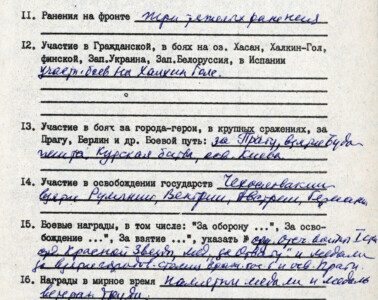 11. Ранения на фронте три тяжелых ранения
12. Участие в Гражданской, в боях на оз. Хасан, Халкин-Гол,
финской, Зап.Украина, Зап.Белоруссия, в Испании
участ. боев на Халкин Голе.
13. Участие в боях за города-герои, в крупных сражениях, за
Прагу, Берлин и др. Боевой путь: за Прагу,
Курская битва, осв. Киева
14. Участие в освобождении государств Чехословакии
Румынии Венгрии, Австрии, Германии
15. Боевые награды, в том числе: "За оборону ...", За осво-
бождение ...", За взятие ...", указать орд. Отеч. войны I ст.
орд Красной Звезды, мед. "за Отвагу" и медали
за и осв. Праги.
16. Награды в мирное время памятные медали и медаль
ветеран труда.